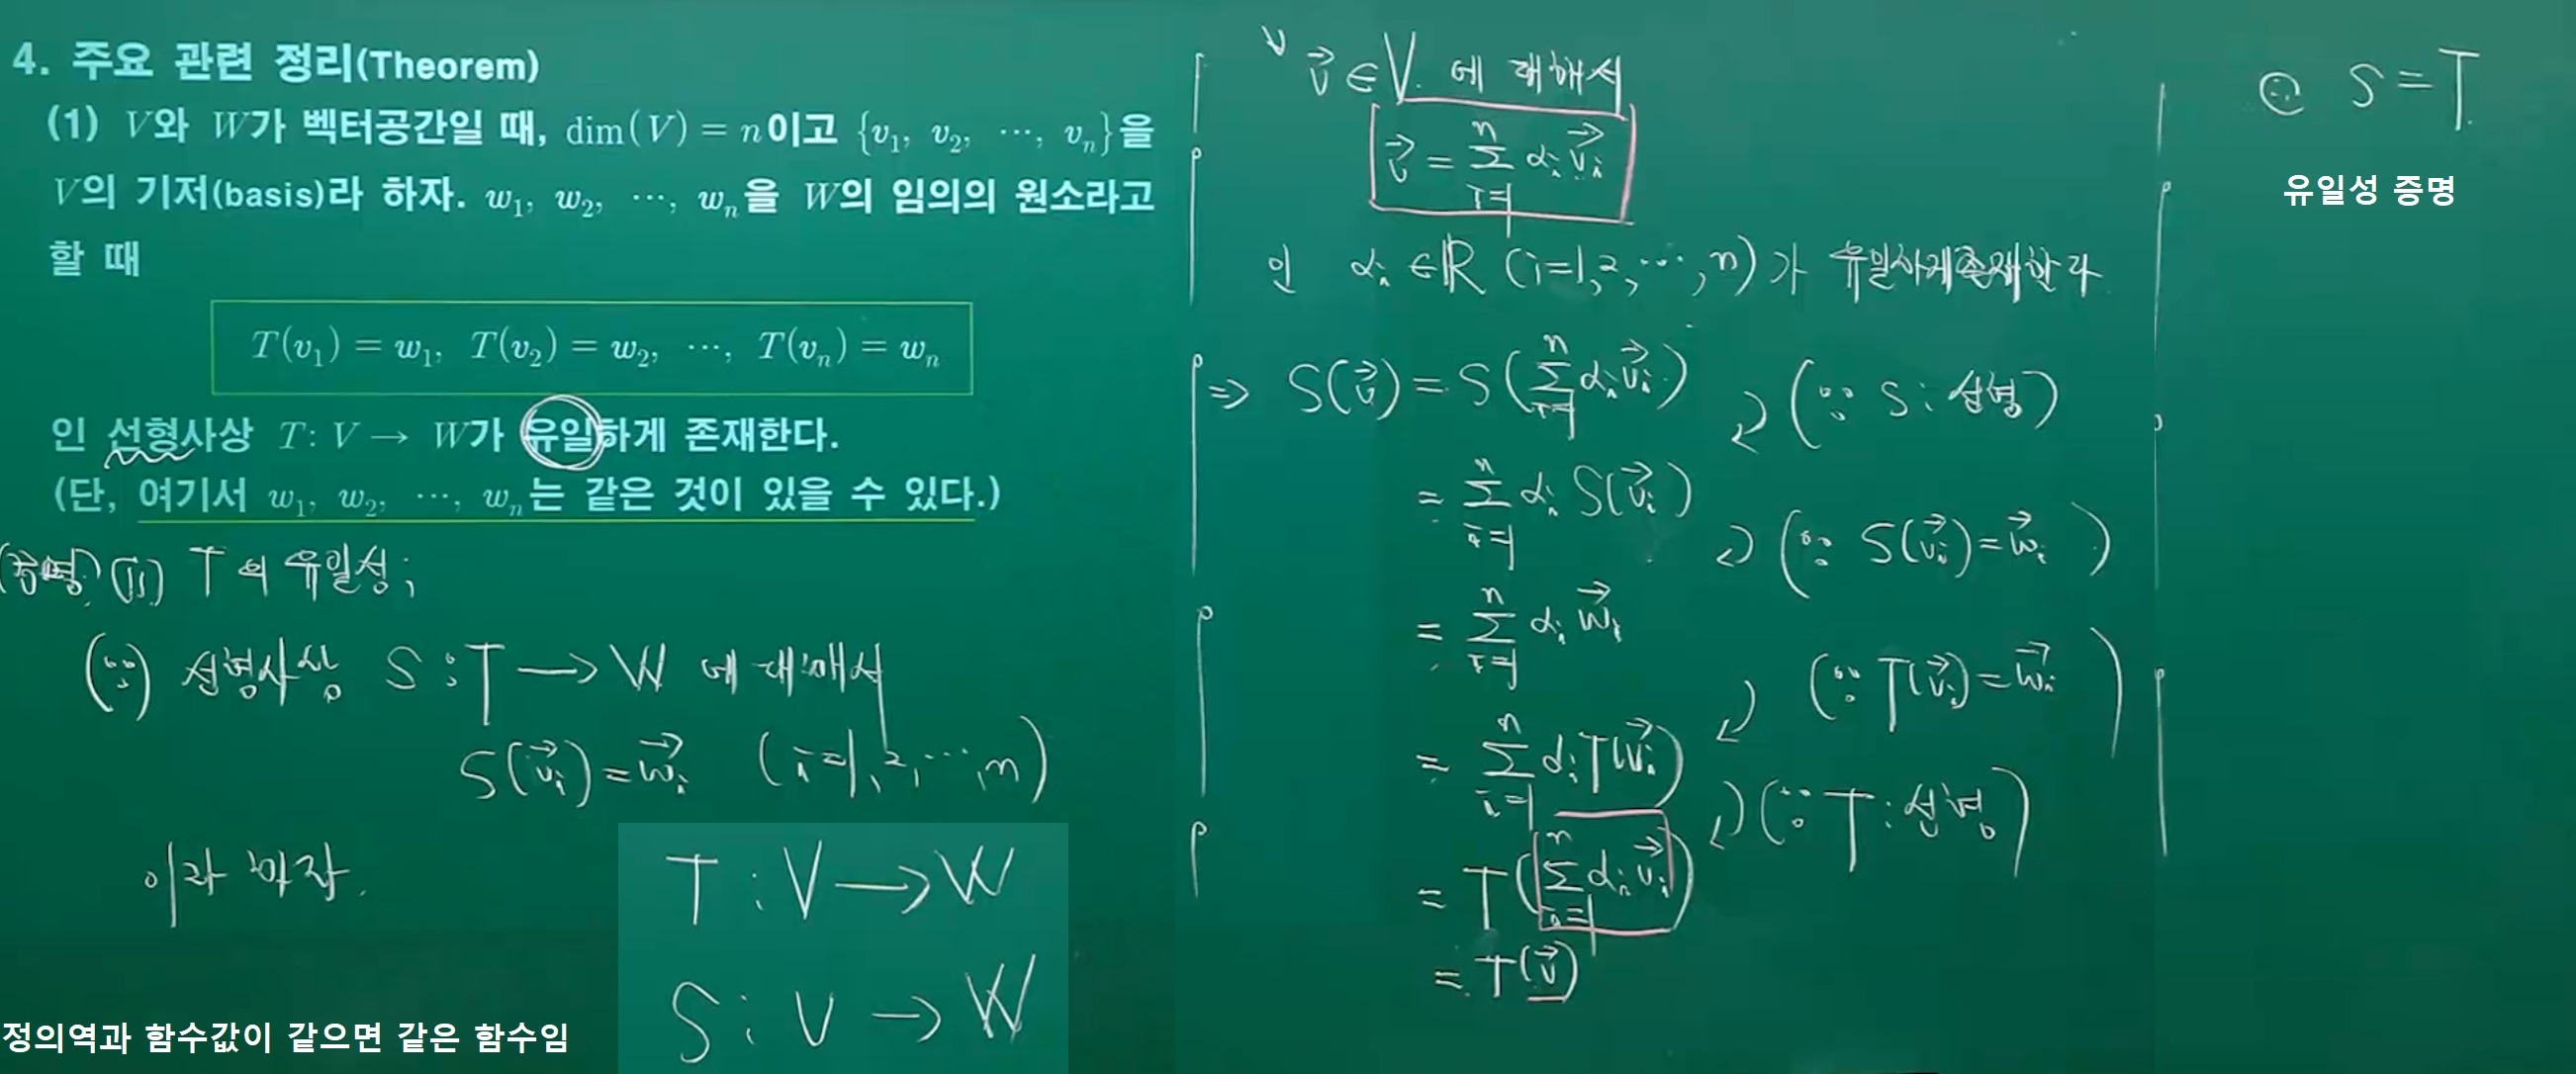 4. 주요 관련 정리(Theorem)
(1) V와 W가 벡터공간일 때, dim(V) = n이고 {v₁, v₂, ⋯, vₙ}을
V의 기저(basis)라 하자. w₁, w₂, ⋯, wₙ을 W의 임의의 원소라고
할 때
T(v₁) = w₁, T(v₂) = w₂, ⋯, T(vₙ) = wₙ
인 선형사상 T : V → W가 유일하게 존재한다.
(단, 여기서 w₁, w₂, ⋯, wₙ는 같은 것이 있을 수 있다.)
(증명) (ii) T의 유일성;
(∵) 선형사상 S : T → W 에 대해서
S(v⃗ᵢ) = w⃗ᵢ (i=1, 2, ⋯, n)
이라 하자.
T : V → W
S : V → W
정의역과 함수값이 같으면 같은 함수임
∨ v⃗ ∈ V. 에 대해서
v⃗ = ∑ᵢ₌₁ⁿ αᵢ v⃗ᵢ
인 αᵢ ∈ ℝ (i=1, 2, ⋯, n)가 유일하게 존재한다
⇒ S(v⃗) = S(∑ᵢ₌₁ⁿ αᵢ v⃗ᵢ)
(∵ S : 선형)
= ∑ᵢ₌₁ⁿ αᵢ S(v⃗ᵢ)
(∵ S(v⃗ᵢ) = w⃗ᵢ)
= ∑ᵢ₌₁ⁿ αᵢ w⃗ᵢ
(∵ T(v⃗ᵢ) = w⃗ᵢ)
= ∑ᵢ₌₁ⁿ αᵢ T(v⃗ᵢ)
(∵ T : 선형)
= T(∑ᵢ₌₁ⁿ αᵢ v⃗ᵢ)
= T(v⃗)
∴ S = T.
유일성 증명